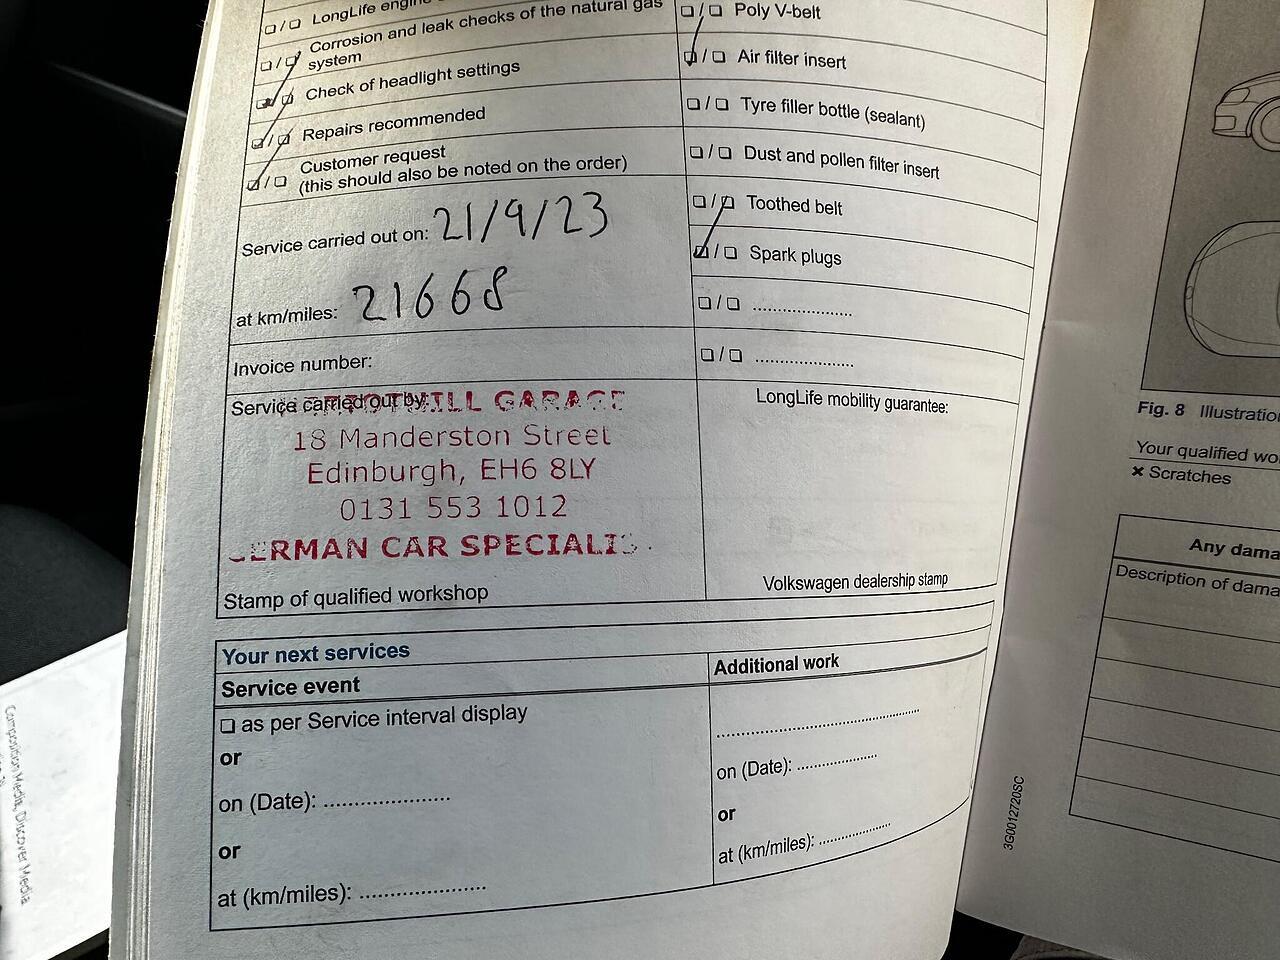 ❏ / ❏ LongLife engine
❏ / ❏ Corrosion and leak checks of the natural gas
system
❏ / ❏ Check of headlight settings
❏ / ❏ Repairs recommended
❏ / ❏ Customer request
(this should also be noted on the order)
Service carried out on: 21/9/23
at km/miles: 21668
Invoice number:
Service carried out by:
GARAGE
18 Manderston Street
Edinburgh, EH6 8LY
0131 553 1012
GERMAN CAR SPECIALIS
Stamp of qualified workshop
❏ / ❏ Poly V-belt
❏ / ❏ Air filter insert
❏ / ❏ Tyre filler bottle (sealant)
❏ / ❏ Dust and pollen filter insert
❏ / ❏ Toothed belt
❏ / ❏ Spark plugs
❏ / ❏ .....................
❏ / ❏ .....................
LongLife mobility guarantee:
Volkswagen dealership stamp
Your next services
Service event
❏ as per Service interval display
or
on (Date): ......................
or
at (km/miles): ......................
Additional work
...................................
on (Date): ................
or
at (km/miles): ..............
3G0012720SC
Fig. 8 Illustration
Your qualified wo
× Scratches
Any dama
Description of dama
Composition Media, Discover Media